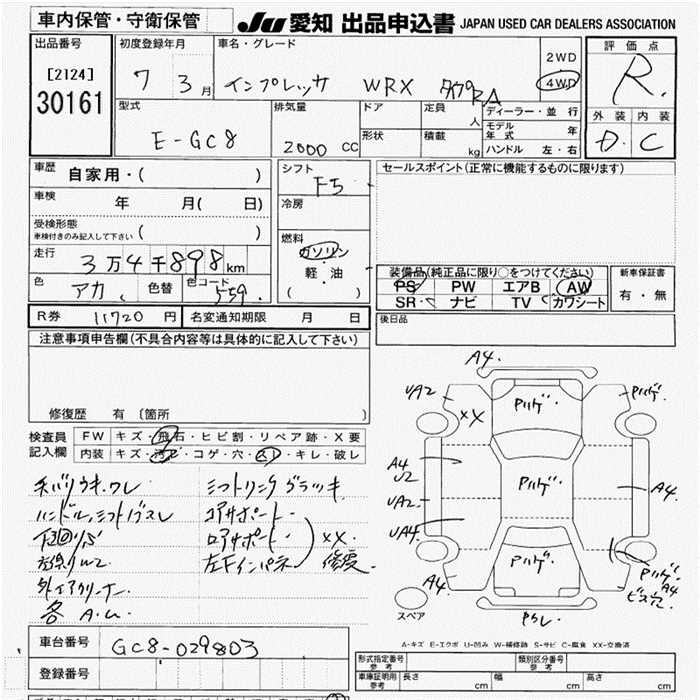 車内保管・守衛保管
JU 愛知 出品申込書 JAPAN USED CAR DEALERS ASSOCIATION
出品番号
[2124]
30161
初度登録年月
7 3月
車名・グレード
インプレッサ WRX タイプRA
2WD
4WD
評価点
R.
型式
E-GC8
排気量
2000 cc
ドア
定員
人
形状
積載
kg
ディーラー・並行
モデル年式 年
ハンドル 左・右
外装 内装
D. C
車歴
自家用・( )
車検
年 月( 日)
受検形態
車検付きのみ記入して下さい ( )
走行
3万4千898km
色
アカ.
色替
色コード
559.
シフト
F5
冷房
燃料
ガソリン
・
軽・油
( )
セールスポイント(正常に機能するものに限ります)
装備品(純正品に限り○をつけてください)
PS PW エアB AW
SR ナビ TV カワシート
新車保証書
有・無
R券 11720円
名変通知期限 月 日
後日品
注意事項申告欄(不具合内容等は具体的に記入して下さい)
修復歴 有 〔箇所 〕
検査員記入欄
FW キズ・飛石・ヒビ割・リペア跡・X要
内装 キズ・汚れ・コゲ・穴・スレ・キレ・破レ
ハンドル,シフトノブスレ
コアサポート・
ロアサポート・
左Fインパネ
XX
修復.
外エアクリーナー
各 A.U.
A4.
UA2
XX
Pハゲ.
Pハゲ・
A4
U2
Pハゲ・
A4.
UA2
UA4
Pハゲ・
A4.
Pハゲ
A4
スペア
A-キズ E-エクボ U-凹み W-補修跡 S-サビ C-腐食 XX-交換済
車台番号
GC8-029803
登録番号
形式指定番号
参考
類別区分番号
参考
車庫証明用
参考
長さ cm 幅 cm 高さ cm